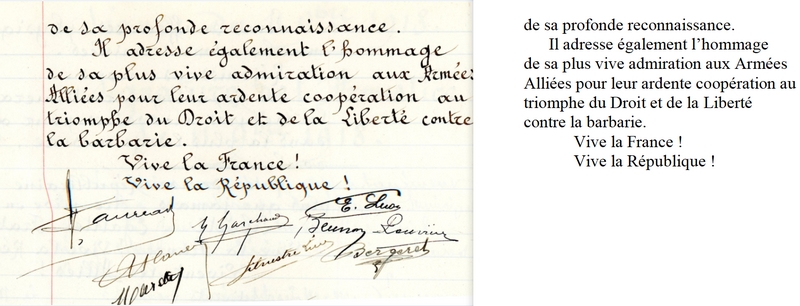 de sa profonde reconnaissance.
Il adresse également l'hommage
de sa plus vive admiration aux Armées
Alliées pour leur ardente coopération au
triomphe du Droit et de la Liberté contre
la barbarie.
Vive la France !
Vive la République !
Bergeret
de sa profonde reconnaissance.
Il adresse également l’hommage
de sa plus vive admiration aux Armées
Alliées pour leur ardente coopération au
triomphe du Droit et de la Liberté
contre la barbarie.
Vive la France !
Vive la République !